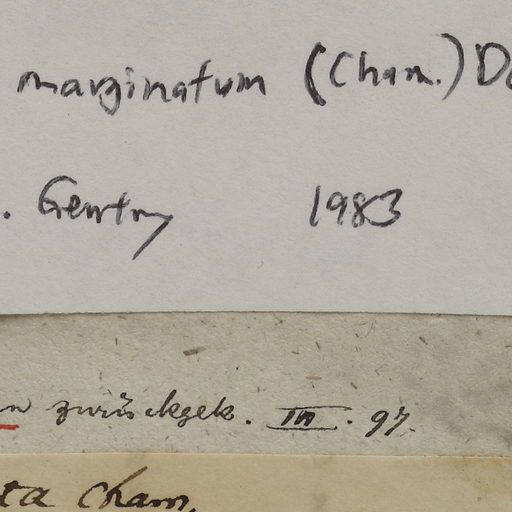 marginatum (Cham.) D
. Gentry 1983
n zurückgek. III. 97.
ta Cham.